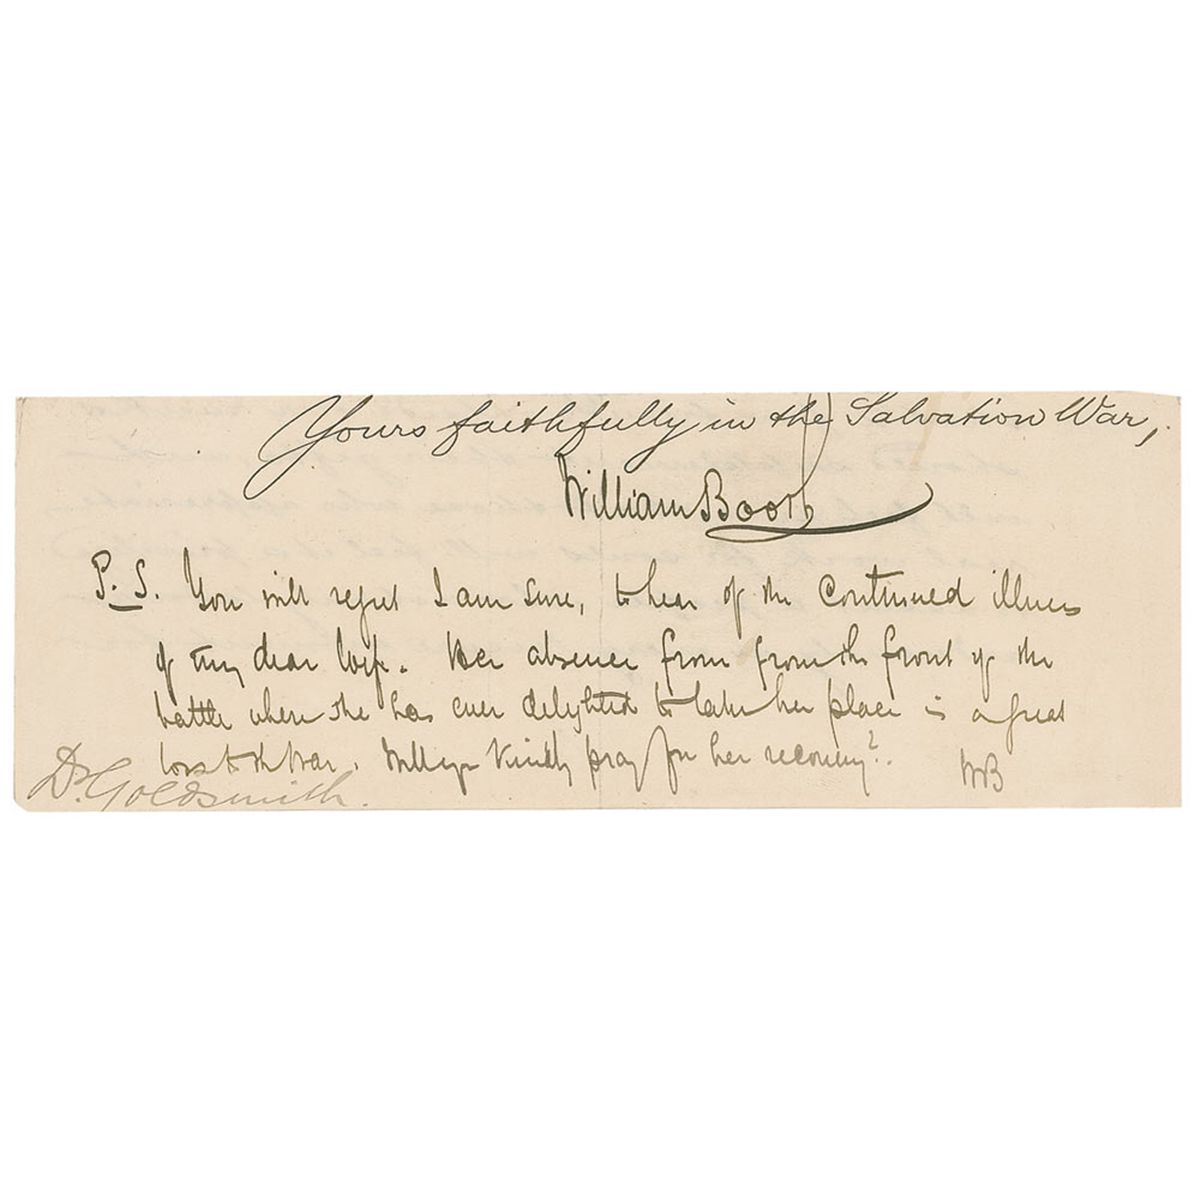 Yours faithfully in the Salvation War,
William Booth
P.S. You will regret I am sure, to hear of the continued illness
of my dear wife. Her absence from from the front of the
battle where she has ever delighted to take her place is a great
loss to the War. Will you kindly pray for her recovery?. WB
Dr. Goldsmith.